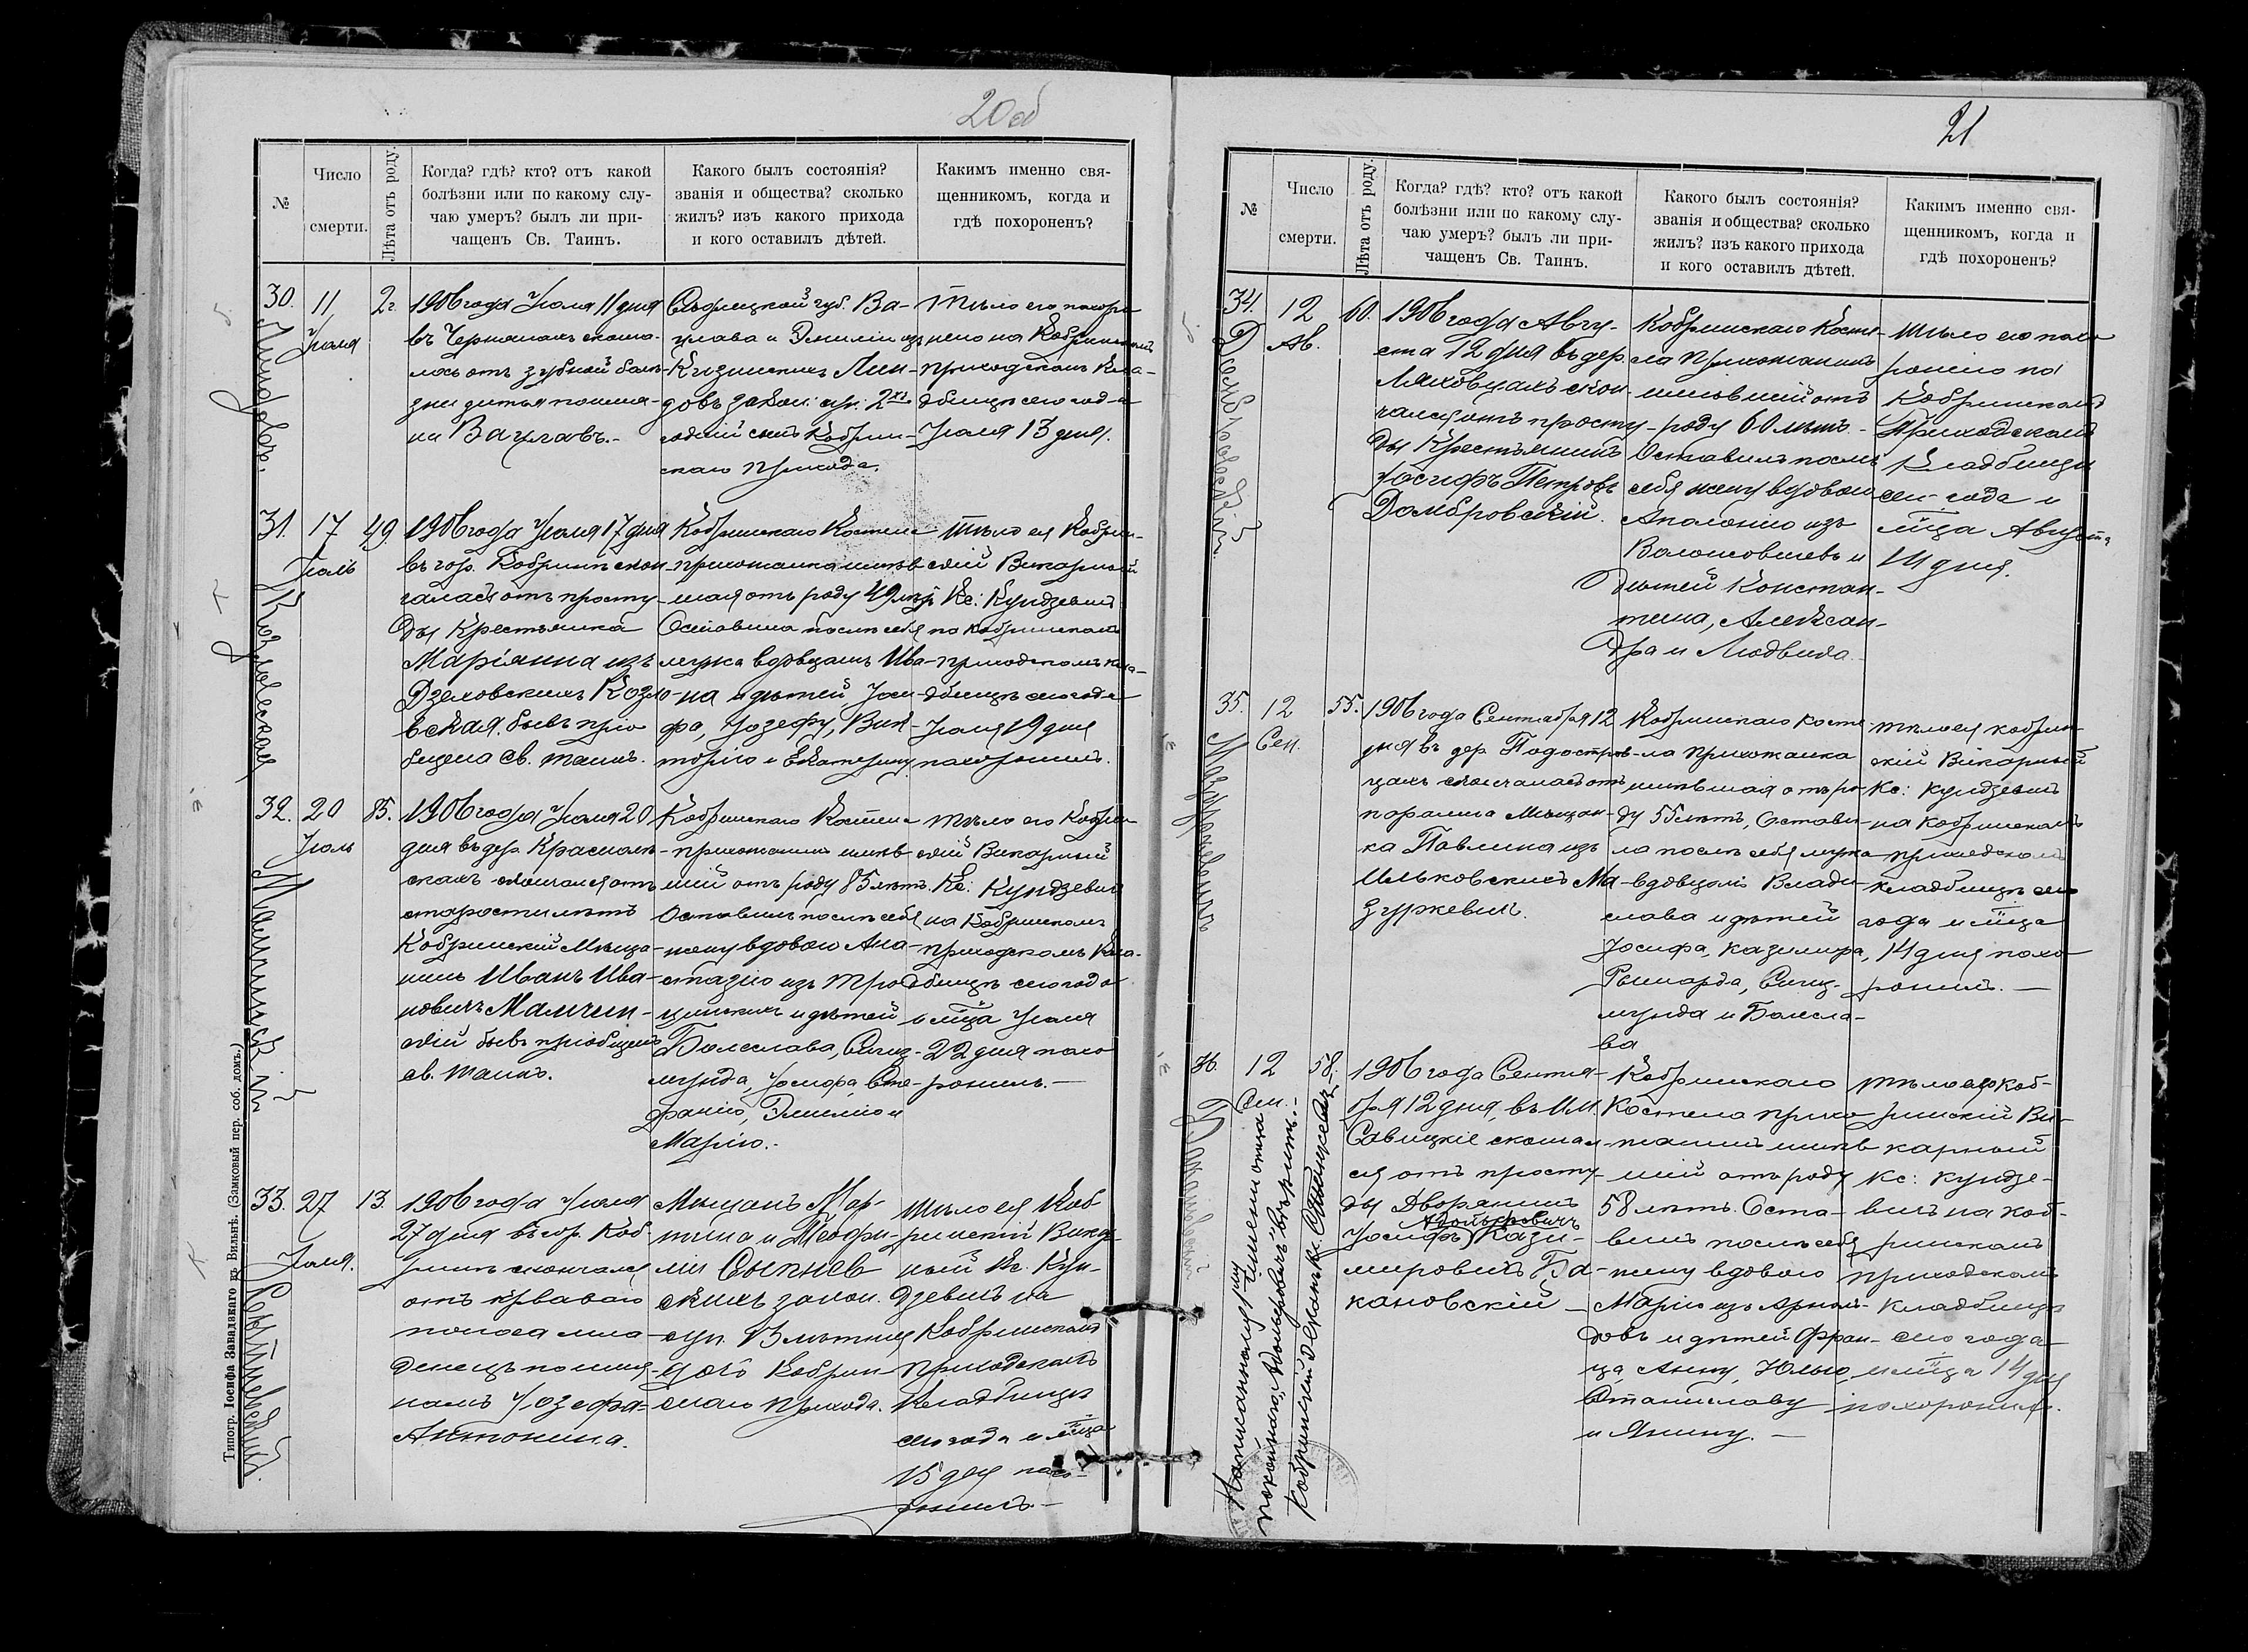 20об
№
Число
смерти.
Лѣта отъ роду.
Когда? гдѣ? кто? отъ какой
болѣзни или по какому слу-
чаю умеръ? былъ ли при-
чащенъ Св. Таинъ.
Какого былъ состоянія?
званія и общества? сколько
жилъ? изъ какого прихода
и кого оставилъ дѣтей.
Какимъ именно свя-
щенникомъ, когда и
гдѣ похороненъ?
30.
11
Июля
2г.
1906 года Июля 11 дня
въ
лось отъ зубной болѣ-
зни дитя
на Вацлавъ.-
губ. Ва-
цлава и Эмиліи изъ
довъ закон. суп. 2хъ
годній сынъ Кобрин-
скаго прихода.
Тѣло его похоро
нено на Кобринскомъ
приходскомъ Кла-
дбищѣ сего года
Июля 13 дня.
31.
17
Июль
49.
Козловская
1906 года Июля 17 дня
въ гор. Кобринѣ скон-
чалась отъ просту-
ды Крестьянка
Маріанна изъ
Дзеловскихъ Козло-
вская, бывъ прiо
бщена Св. таинъ.
Кобринскаго Костела
прихожанка живъ
шая отъ роду 49 лѣтъ
Оставила послѣ себя
мужа вдовцомъ Ива-
на и дѣтей Іоси-
фа, Іозефу, Вик-
торію и Екатерину
Тѣло ея Кобрин-
скій Викарный
Кс: Кундзевичъ
на Кобринскомъ
приходскомъ кла-
дбищѣ сего года
Июля 19 дня
похоронилъ.
32.
20
Июль
85.
Мамчинскій
1906 года Июля 20
дня въ дер.
скахъ скончался отъ
старости лѣтъ
Кобринскій Мѣща-
нинъ Иванъ Ива-
новичъ Мамчин-
скій бывъ пріобщенъ
св. таинъ.
Кобринскаго Костела
прихожанинъ живъ
шій отъ роду 85 лѣтъ.
Оставилъ послѣ себя
жену вдовою Ана-
стазію изъ Тро
цинскихъ и дѣтей
Болеслава, Сигиз-
мунда, Іосифа, Сте-
фанію, Эмилію и
Марію.-
тѣло его Кобрин
скій Викарный
Кс: Кундзевичъ
на Кобринскомъ
приходскомъ Кла-
дбищѣ сего года
и мца Июля
22 дня похо
ронилъ.-
33.
27
Июля.
13.
1906 года Июля
27 дня въ гор. Коб-
ринѣ скончался
отъ крваваго
поноса мла-
денецъ по имя-
намъ Іозефа-
Антонина.
Мѣщанъ Мар-
тина и Теофи-
ліи Сыпнев
скихъ закон.
суп. 13 лѣтняя
дочь Кобрин
скаго прихода.
тѣло ея Коб-
ринскій Вика
ный Кс. Кун-
дзевичъ на
Кобринскомъ
приходскомъ
Кладбищѣ
сего года и мца
15 дня похо-
ронилъ.-
Типогр. Іосифа Завадзкаго въ Вильнѣ. (Замковый пер. соб. домъ.)
21
№
Число
смерти.
Лѣта отъ роду.
Когда? гдѣ? кто? отъ какой
болѣзни или по какому слу-
чаю умеръ? былъ ли при-
чащенъ Св. Таинъ.
Какого былъ состоянія?
званія и общества? сколько
жилъ? изъ какого прихода
и кого оставилъ дѣтей.
Какимъ именно свя-
щенникомъ, когда и
гдѣ похороненъ?
34.
12
Ав.
60.
Домбровскій.
1906 года Авгу-
ста 12 дня въ дер.
Ляховцахъ скон-
чался отъ просту-
ды Крестьянинъ
Іосифъ Петровъ
Домбровскій.
Кобринскаго Косте-
ла прихожанинъ
жившій отъ
роду 60 лѣтъ.-
Оставилъ послѣ
себя жену вдовою
Аполонію изъ
и
дѣтей Констан-
тина, Алексан-
дра и Людвика
тѣло его похо
ронено на
Кобринскомъ
Приходскомъ
Кладбищѣ
сего года и
мца Августа
14 дня.
35.
12
Сен.
55.
Мазуркевичъ
1906 года Сентября 12
дня въ дер. Подостров-
цахъ скончалась отъ
паралича Мѣщан-
ка Павлина изъ
Ильковскихъ Ма-
зуркевичъ.
Кобринскаго косте
ла прихожанка
жившая отъ ро-
ду 55 лѣтъ, Остави-
ла послѣ себя мужа
вдовцомъ Влади-
слава и дѣтей
Іосифа, Казимира,
Рышарда, Сигиз-
мунда и Болесла-
ва
тѣло ея кобрин
скій Викарный
Кс: Кундзевичъ
на кобринскомъ
приходскомъ
кладбищѣ сего
года и мца
14 дня похо
ронилъ.-
36.
12
Сен.
58.
Бакановскій
1906 года Сентя-
бря 12 дня, въ им.
Савицкіе скончал-
ся отъ просту-
ды Дворянинъ
Адольфовичъ
Іосифъ (Кази-
мировичъ Ба-
кановскій
Кобринскаго
Костела прихо
жанинъ живъ
шій отъ роду
58 лѣтъ. Оста-
вилъ послѣ себя
жену вдовою
Марію изъ Арноль-
довъ и дѣтей Фран-
ца, Анну, Юлію,
Станиславу
и Янину.-
тѣло его Коб-
ринскій Ви-
карный
Кс: Кундзе-
вичъ на коб-
ринскомъ
приходскомъ
кладбищѣ
сего года
и мца 14 дня
похоронилъ.
Написанному имени отца
покойнаго „Адольфовичъ" вѣрить.-
Кобринскій Деканъ Кс.